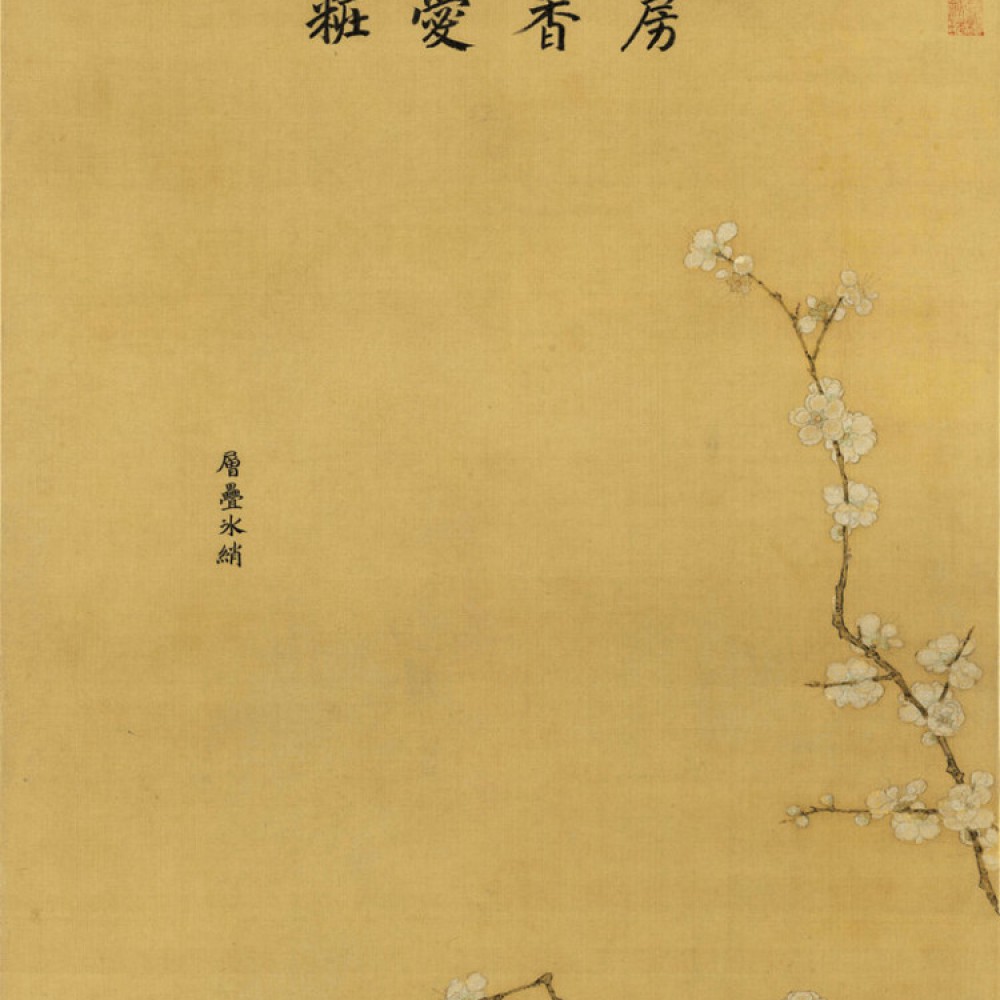 房
香
愛
粧
層疊氷綃